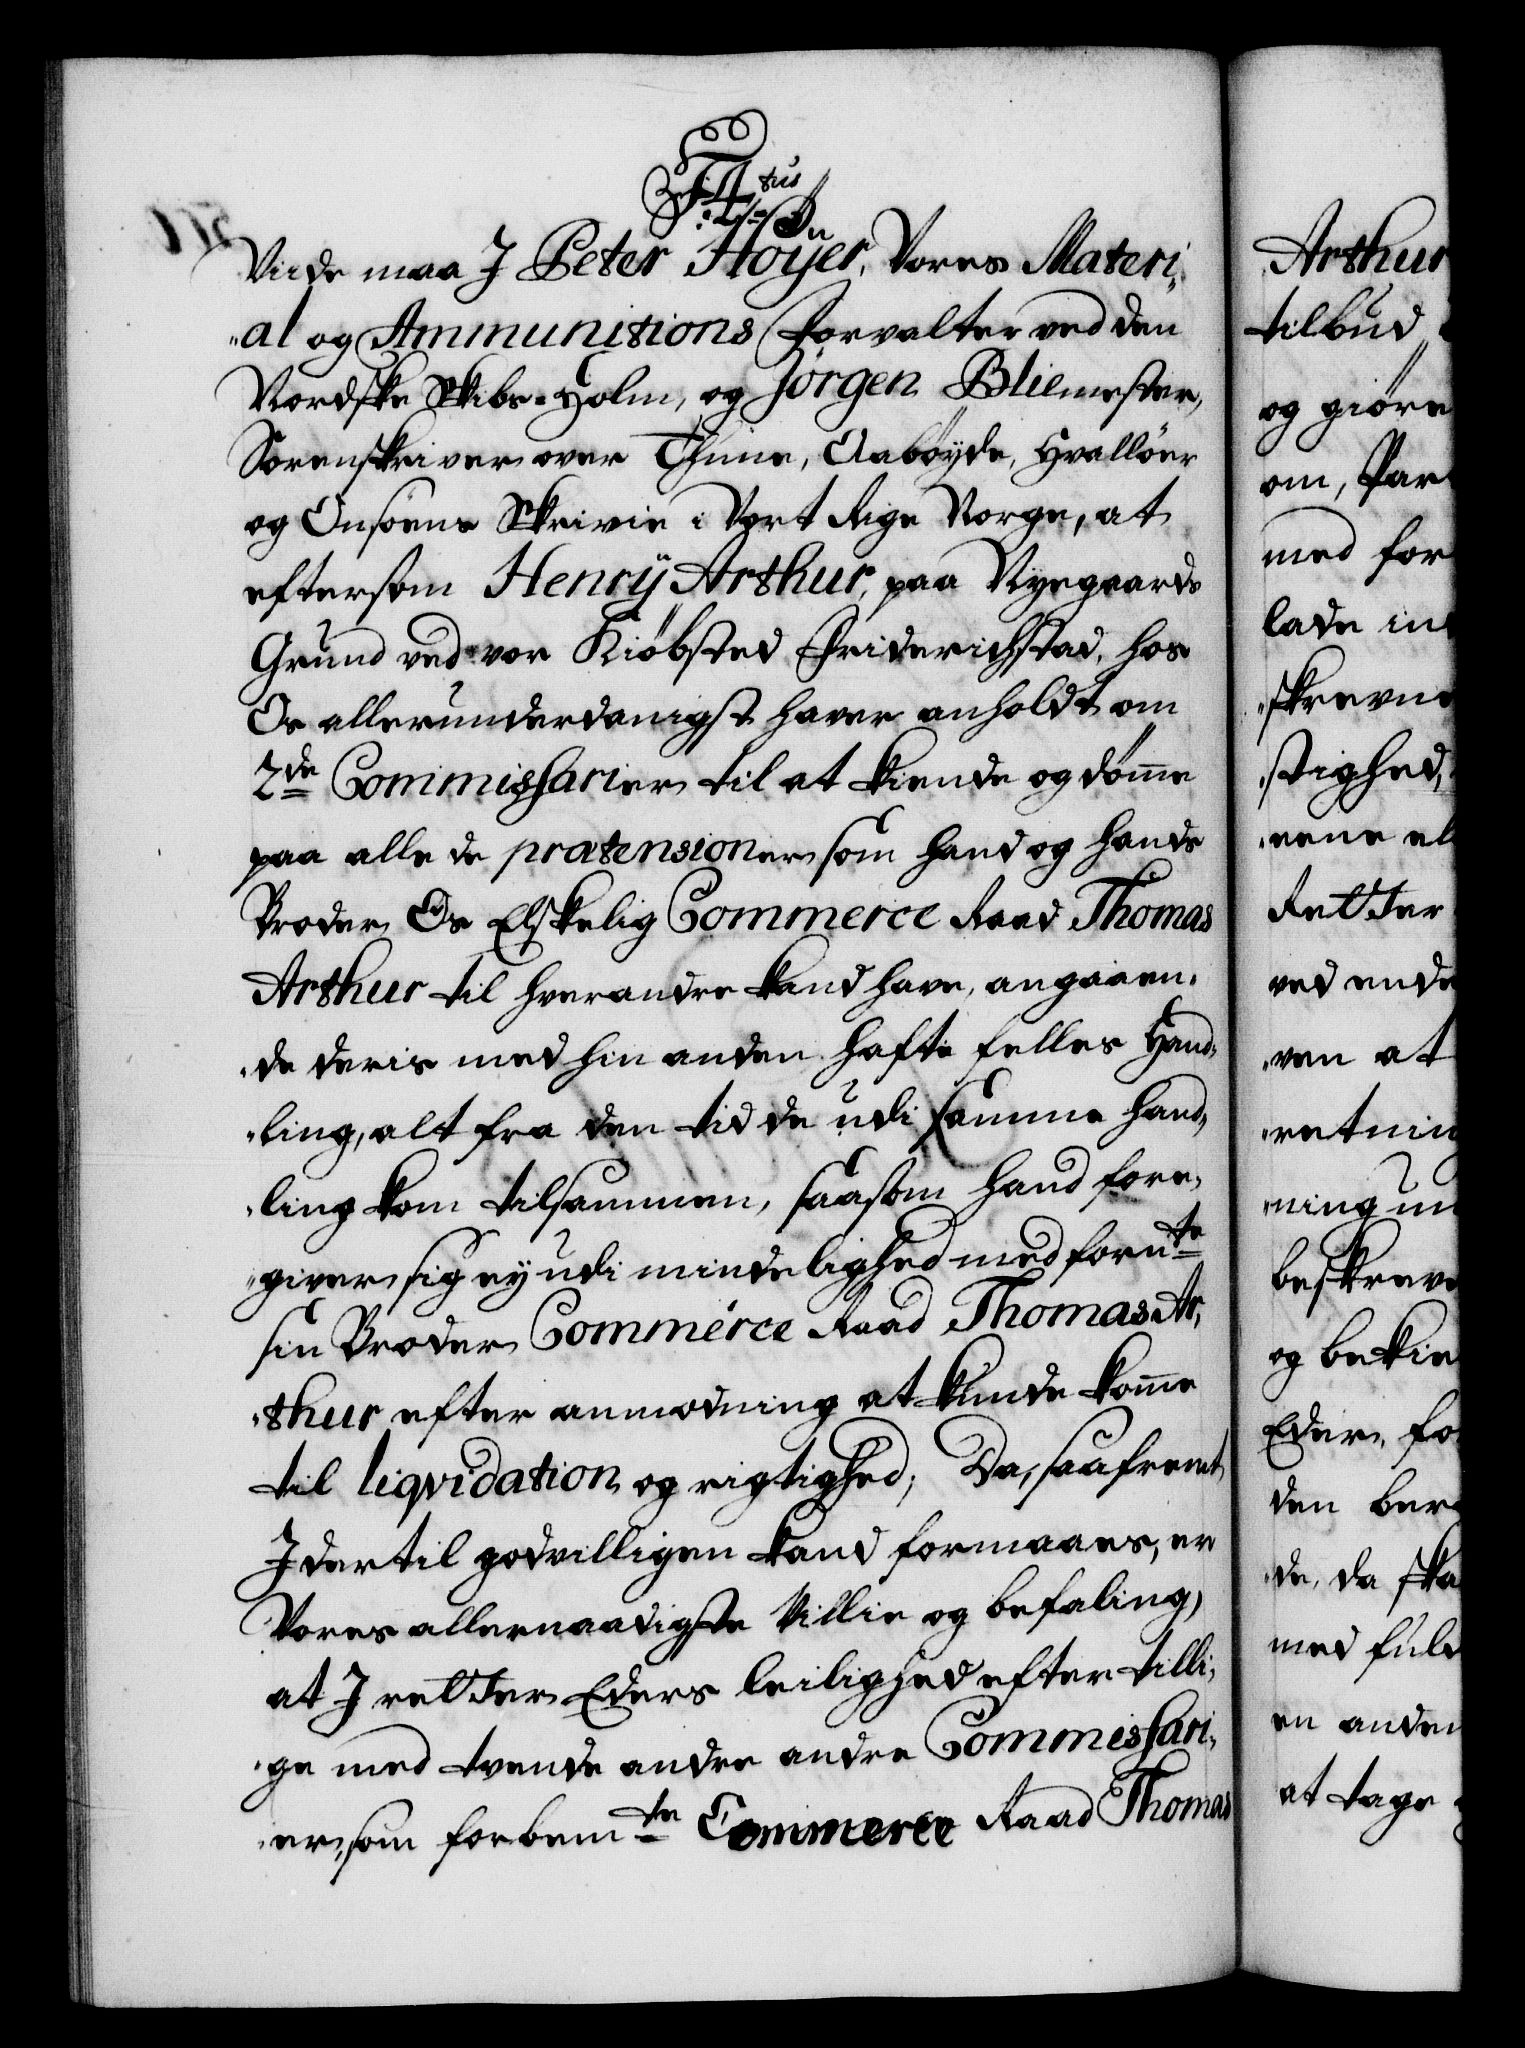 F 4tus
Viide maa I Peter Höÿer, Vores Materi¸
¸al og Ammunitions Forvalter ved den
Nordske Skibs-Holm, og Jörgen Bliemester,
Sorenskriver over Thune, Aaböyde, Hvallöer
og Onsöens Skrivie i Vort Rige Norge, at
eftersom Henrÿ Arthur, paa Nyegaards
Grund ved vor Kiöbsted Friderichstad, hos
Os allerunderdanigst haver anholdt om
2de Commissarier til at kiende og döm̄e
paa alle de prætensioner, som hand og hands
Broder, Os Elskelig Commerce Raad Thomas
Arthur til hverandre kand have, angaaen¸
¸de deris med hin anden hafte felles Hand¸
¸ling, alt fra den tid de udi samme hand¸
¸ling kom tilsammen, saasom hand fore¸
¸giver, sig ey udi mindelighed med forn̄te
sin Broder Commerce Raad Thomas Ar¸
¸thur efter anmodning at kunde kom̄e
til liqvidation og rigtighed; Da, saafremt
I dertil godvilligen kand formaaes, er
Vores allernaadigste Villie og befaling,
at I retter Eders leilighed efter tilli¸
¸ge med tvende andre andre Commissari¸
¸er, som forbem̄te Commerce Raad Thomas
Arthur
tilbud
og giöre
om, Par
med for
lade ind
¸skrevne
¸stighed,
¸eene el
Retter
ved ende
¸ven at
¸retning
¸ning un
beskreve
og bekie
Eder, fo
den ber
¸de, da ska
med ful
en anden
at tage